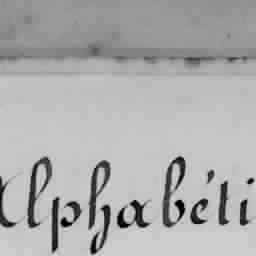 Alphabéti